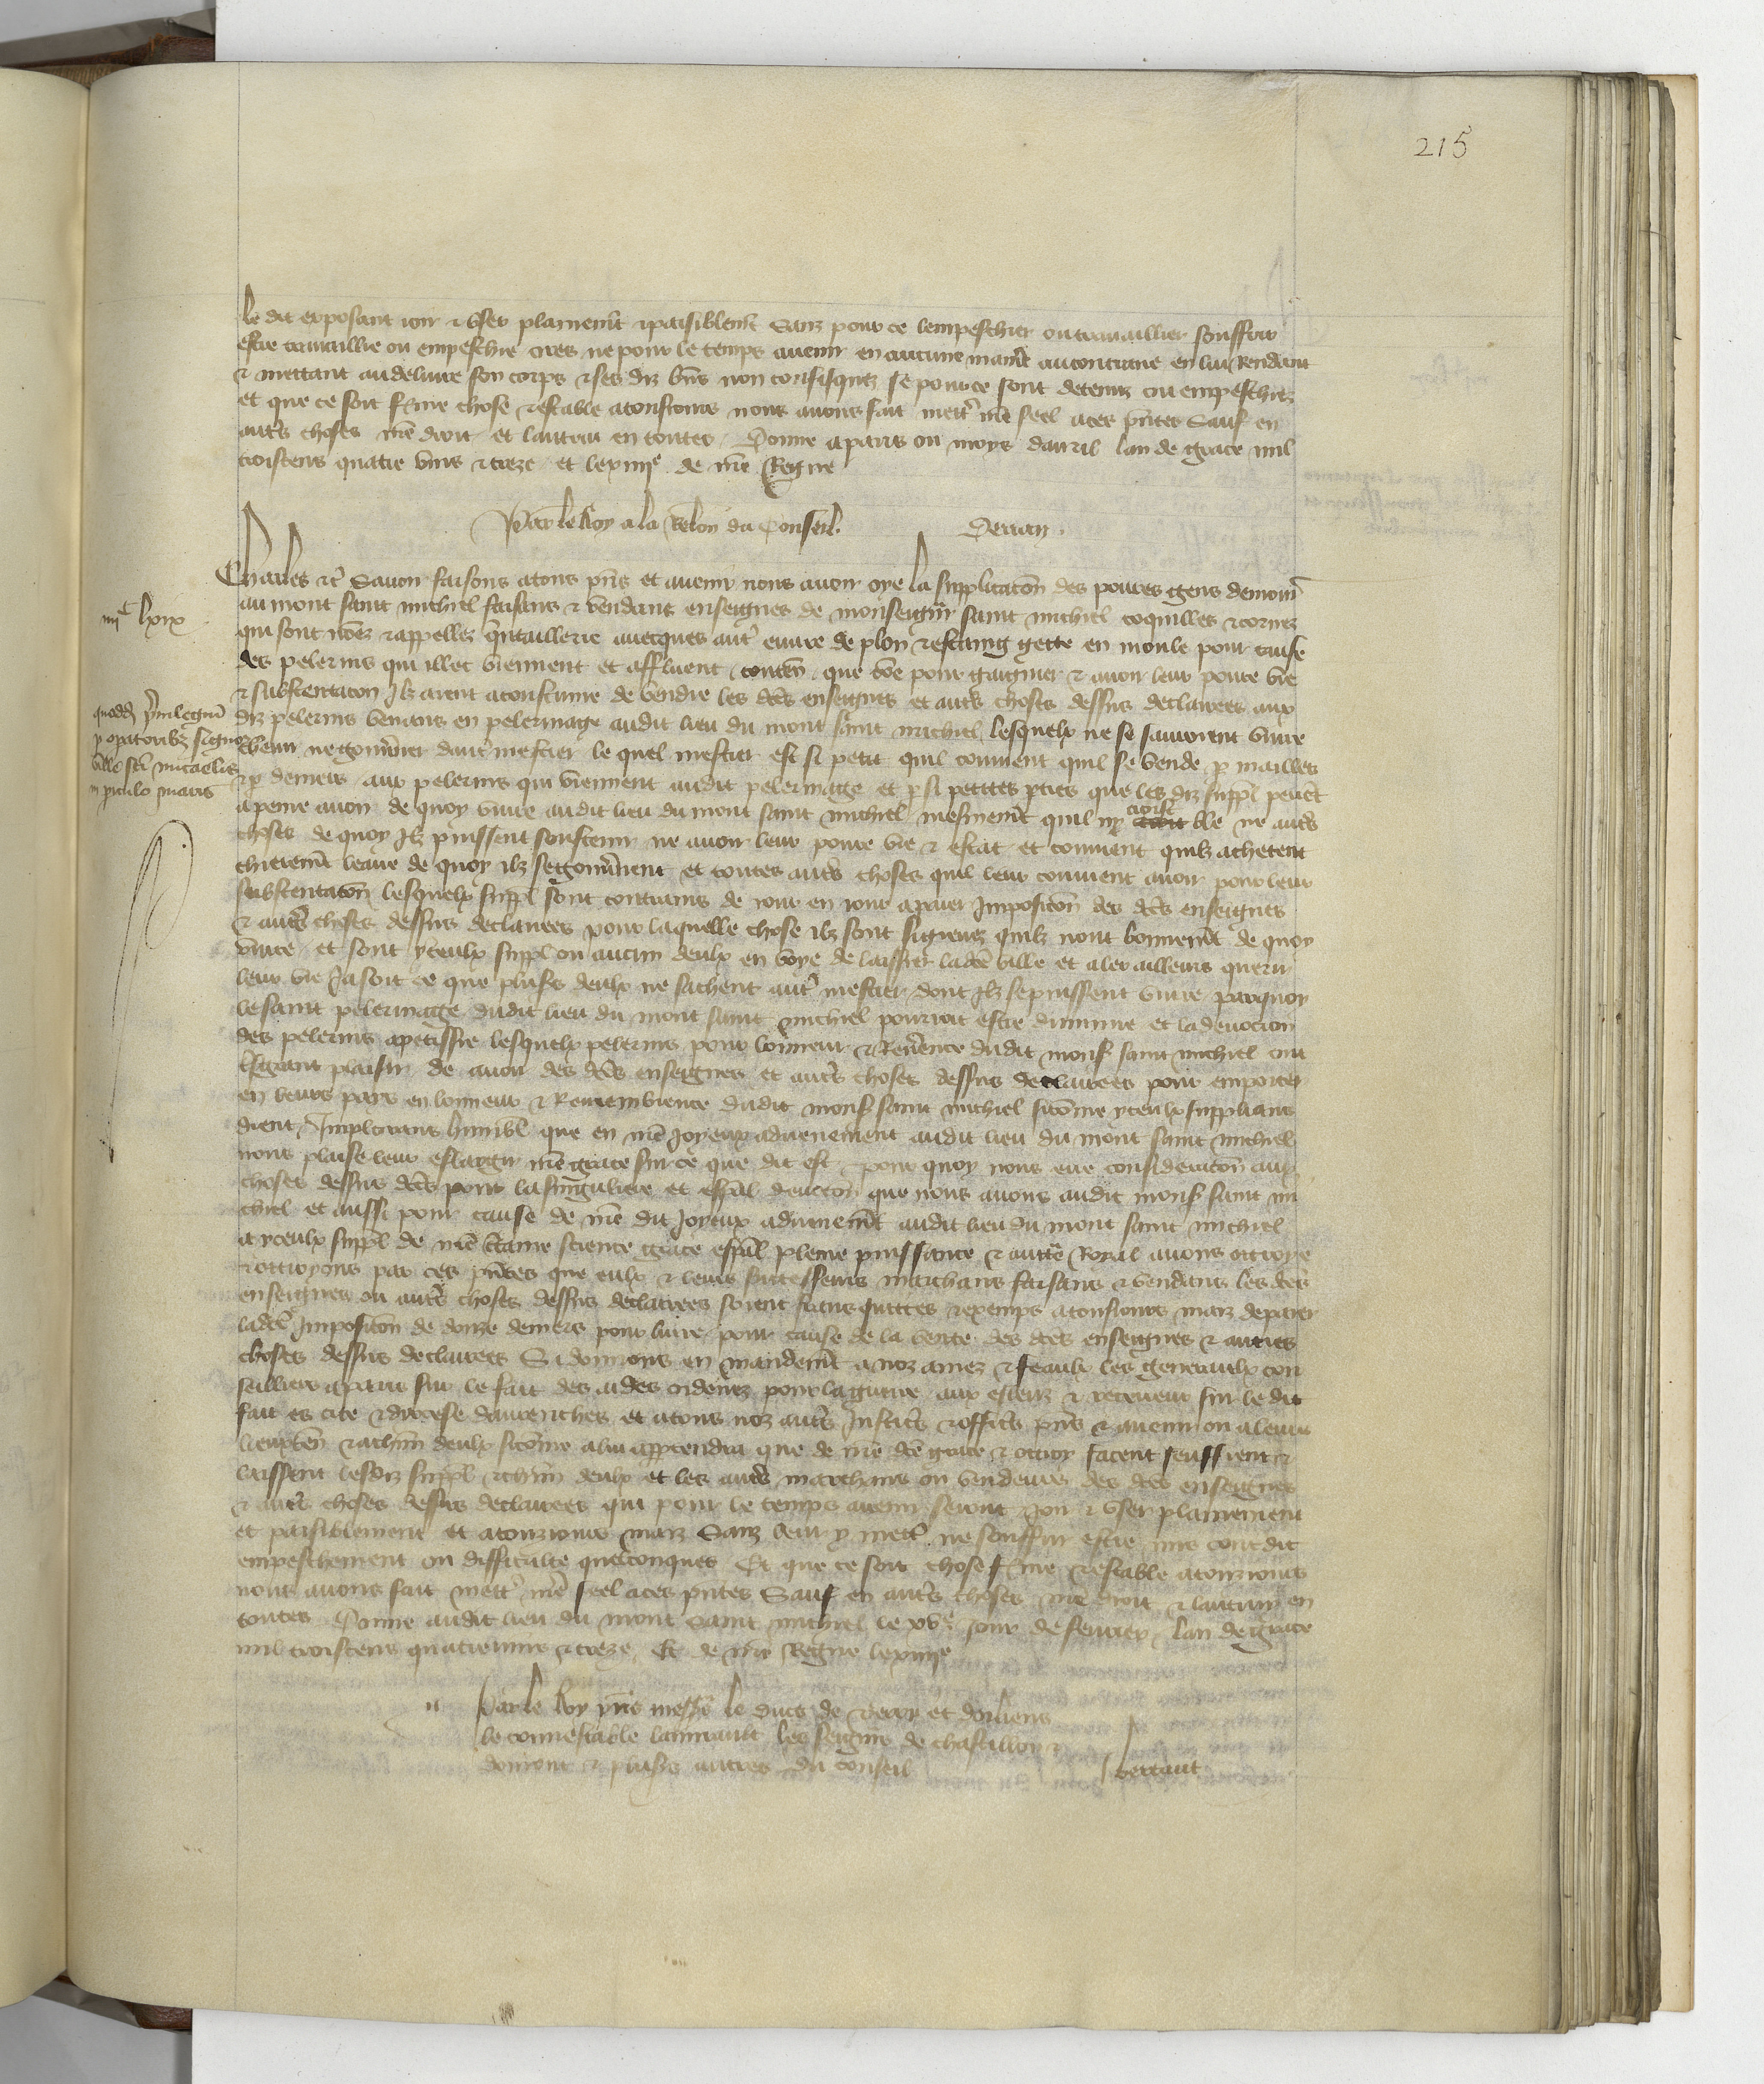 215
le dit exposant ioir & user plainemt & paisiblemt Sanz pour ce lempeschier ou travaillier souffrir
estre travaillie ou empeschie ores ne pour le temps avenir en aucune maniē au contraire en lui Rendant
& mettant au delivre son corps & ses diz biēs non confisquez se pour ce sont detenuz ou empeschiez
et que ce soit ferme chose & estable a tousiours nous avons fait mettr̄ nr̄e seel a ces pn̄tes Sauf en
autrs choses nr̄e droit et lautrui en toutes Donne a paris ou moys davril lan de grace mil
troiscens quatre vins & treze et le xiiiie de nr̄e Regne
Par le Roy a la Relon du Conseil. Derian.
Charles &c Savoir faisons a tous pn̄s et avenir nous avoir oye la supplicacōn des povres gens demour̄
au mont saint michiel faisans & vendant enseignes de monseignr̄ saint michiel coquilles & cornez
qui sont nōez & appellez quiaillerie avecques autr̄ euvre de plon & estaing gette en moule pour cause
des pelerins qui illec viennent et affluent contēn que cōe pour gaignier & avoir leur povre vie
& substentacōn Ilz aient acoustume de vendre les dc̄es enseignes et autrs choses dessus declairees aux
diz pelerins venans en pelerinage audit lieu du mont saint michiel lesquelx ne se sauroient vivre
chevir ne gouverner dautr̄ mestier le quel mestier est si petit quil convient quil se vende p mailles
& p deniers aux pelerins qui viennent audit pelerinage et p si petites pties que les diz suppl peuet
a peine avoir de quoy vivre audit lieu du mont saint michiel mesmemt quil ny croist ble ne autrs
choses de quoy Ilz puissent soustenir ne avoir leur povre vie & estat et convient quilz achetent
chieremt leaue de quoy ilz se gouvernent et toutes autrs choses quil leur convient avoir pour leur
substentacōn lesquelx suppl sont contrains de iour en iour a paier Imposicōn des dc̄es enseignes
& autrs choses dessus declairees pour laquelle chose ilz sont si grevez quilz nont bonnemt de quoy
vivre et sont yceulx suppl ou aucun deulx en voye de laissier ladc̄e ville et aler ailleurs querir
leur vie Jasoit ce que plusrs deulx ne sachent autr̄ mestier dont Ilz se puissent vivre parquoy
le saint pelerinage dudit lieu du mont saint michiel pourroit estre diminue et la devocion
des pelerins apetissie lesquelx pelerins pour lonneur & Reverence dudit monsr saint michiel ont
tsgrant plaisir de avoir des dc̄es enseignes et autrs choses dessus declairees pour emporter
en leurs pais en lonneur & Remembrence dudit monsr saint michiel sicōme yceulx supplians
dient Implorans humbl que en nr̄e joyeux advenement audit lieu du mont saint michiel
nous plaise leur eslargir nr̄e grace sur ce que dit est pour quoy nous eue consideracōn aux
choses dessus dc̄es pour la singuliere et espāl devocōn que nous avons audit monsr saint mi
chiel et aussi pour cause de nr̄e dit Joyeux advenemt audit lieu du mont saint michiel
a yceulx suppl de nr̄e c̄taine science grace espāl pleine puissance & auctē Royal avons ottroye
& ottroyons par ces pn̄tes que eulx & leurs successeurs marchans faisans & vendans les dc̄es
enseignes ou autrs choses dessus declairees soient frans quittes & exemps a tousiours mais de paier
ladc̄e Imposicōn de douze deniers pour livre pour cause de la vente des dc̄es enseignes & autres
choses dessus declairees Si donnons en mandemt a noz amez & feaulx les generaulx con
seilliers a paris sur le fait des aides ordenez pour la guerre aux esleuz & receveur sur le dit
fait es cite & diocese davrenches et a tous noz autrs Justicrs & officrs pn̄s & avenir ou a leurs
lieuxtēn & a chūn deulx sicōme a lui appartendra que de nr̄e dc̄e grace & ottroy facent seuffrent &
laissent lesdiz suppl & chūn deulx et les autrs marchans ou vendeurs des dc̄es enseignes
& autrs choses dessus declairees qui pour le temps avenir seront joir & user plainement
et paisiblement et a touzjours mais Sanz leur y mettr̄ ne souffrir estre mis contredit
empeschement ou difficulte quelconques Et que ce soit chose ferme & estable a touzjours
nous avons fait mettr̄ nr̄e seel a ces pn̄tes Sauf en autrs choses nr̄e droit & lautrui en
toutes Donne audit lieu du mont saint michiel le xve jour de fevrier lan de grace
mil troiscens quatrevins & treze Et de nr̄e Regne le xiiiie
Par le Roy pn̄s messrs le ducs de Berry et dorliens
le connestable lamirault les seigrs de chastillon &
domont & plusrs autres du conseil
Bertaut
iiiic lxix
quodd privilegiū
p opatoribȝ signorū
ville sci micaelis
in piculo maris